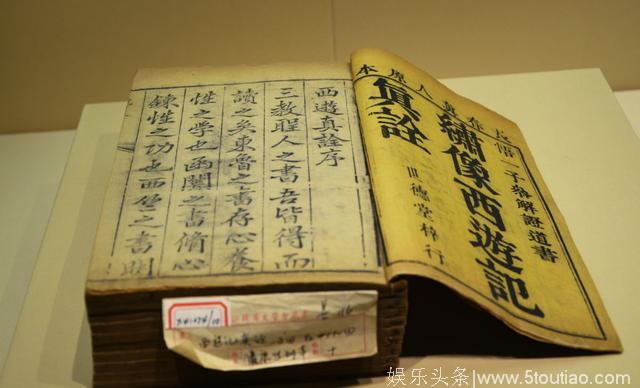 長春真人原本
悟一子參解證道書
繡像西遊記
真詮
世德堂梓行
西遊真詮序
三教聖人之書吾皆得而
讀之矣東魯之書存心養
性之學也函關之書脩心
鍊性之功也西竺之書明
娱乐头条 www.5toutiao.com